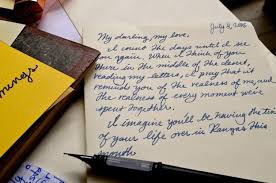 July 8, 2006
My darling, my love.
I count the days until I see
you again. When I think of you
there in the middle of the desert,
reading my letters, I pray that it
reminds you of the realness of me, and
the realness of every moment we've
spent together.
I imagine you'll be having the time
of your life over in Kansas this
month